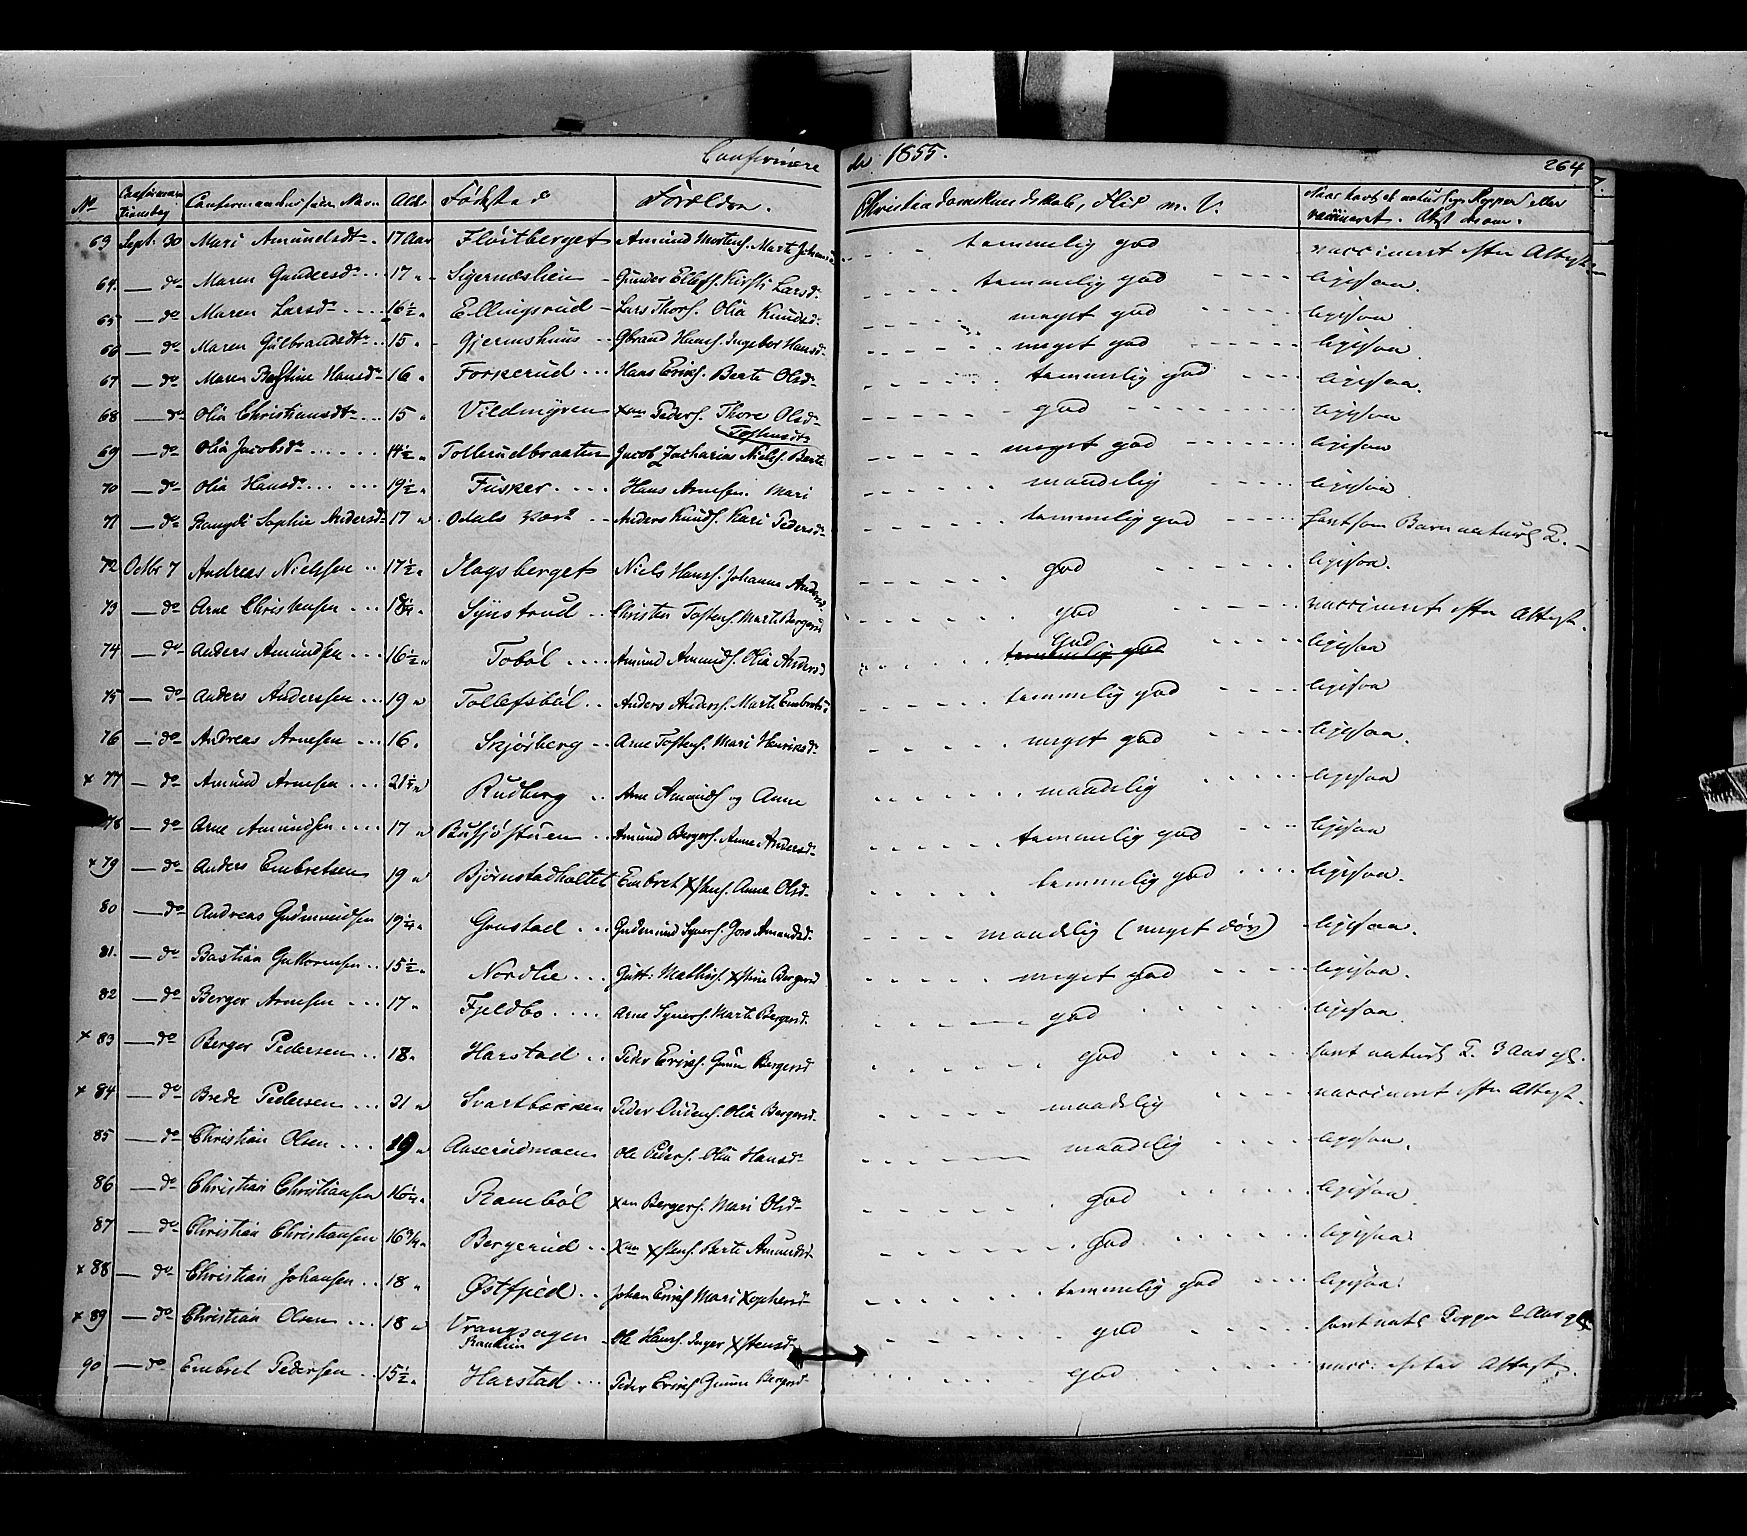 Confirmere de 1855. 264
No Confirmations dag Confirmandernes Navn Alder Fødested Forældre. Christendomskundskab, Flid m. V. Naar havt de naturlige Kopper eller vaccineret. Attest derom.
63 Sept. 30 Mari Amundsdtr 17 Aar Fløitberget Amund Mortens. Marte Johannsd temmelig god vaccineret efter Attest
64. do Maren Gundersdr 17 " Sigernæslien Gunder Ellefs. Kirsti Larsdr temmelig god ligesaa.
65 do Maren Larsdr 16½ " Ellingsrud Lars Thors. Olia Knudsdr meget god ligesaa
66 do Maren Gulbrandsdtr 15 " Gjermshuus Gbrand Hans. Ingebor Hansdr meget god ligesaa.
67 do Maren Hansdr 16 " Forkerud Hans Erichs. Berte Olsdr temmelig god ligesaa.
68 do Olia Christiansdtr 15 " Vildmyren Xan Peders. Thore Olsdr god ligesaa
69 do Olia Jacobsdr 14½ " Tollerudbraaten Jacob Zacharias Niels. Berte Tostensdtr meget god ligesaa
70 do Olia Hansdr 19½ " Fusker Hans Arnesen. Mari maadelig ligesaa
71 do Rangdi Sophie Andersdr 17 " Odals Værk Anders Knuds. Kari Pedersdr temmelig god havt som Barn naturl. K.
72 Octbr 7 Andreas Nielsen 17½ " Flagsberget Niels Hans. Johanne Andersd. god ligesaa.
73 do Arne Christensen 18¼ " Synstrud Christen Tostens. Marte Bergersd god vaccineret efter Attest.
74 do Anders Amundsen 16½ " Tobøl Amund Amunds. Olia Andersd god temmelig god ligesaa
75 do Anders Anderssen 19 " Tollefsbøl Anders Anders. Marte Embretsd temmelig god ligesaa
76 do Andreas Arnesen 16 " Skjørberg Arne Tostens. Mari Henriksdr meget god ligesaa.
x 77 do Amund Arnesen 21½ " Rudberg Arne Amunds og Anne maadelig ligesaa
78 do Arne Amundsen 17 " Busjøstuen Amund Bergers. Anne Andersdr temmelig god ligesaa
x 79 do Anders Embretsen 19 " Bjørnstadholtet Embret Xstens. Anne Olsdr temmelig god ligesaa.
80 do Andreas Gudmundsen 19¼ " Gonstad Gudmund Syvers. Amundsdr maadelig (meget døv) ligesaa.
81. do Bastian Guttormsen 15½ " Nordlie Gutt: Mathis. Xstine Bergersd meget god ligesaa.
82 do Berger Arnesen 17 " Fjeldbo Arne Syvers. Marte Bergersd. god ligesaa.
x 83 do Berger Pedersen 18 " Harstad Peder Erichs. Gunne Bergersd god havt naturl. K. 3 Aar gl.
x 84 do Brede Pedersen 21 " Svartbækken Peder Audens. Olia Bergersd. maadelig vaccineret efter Attest.
85 do Christian Olsen 19 " Aaserudmoen Ole Peders. Olia Hansdr maadelig ligesaa.
86 do Christian Christiansen 16¼ " Rambøl Xan Bergers. Mari Olsdr god ligesaa.
87 do Christian Christiansen 16¾ " Bergerud Xan Xstens. Berte Amundsd god ligesaa
x 88 do Christian Johansen 18 " Østfjed Johan Erichs Mari Xophersd temmelig god ligesaa.
x 89 do Christian Olsen 18 " Vrangsagen Ole Hans. Inger Xstensdr god havt natl. Kopper 2 Aar gl.
90 do Embret Pedersen 15½ " Harstad Peder Erichs Gunne Bergersd god vacc: efter Attest.